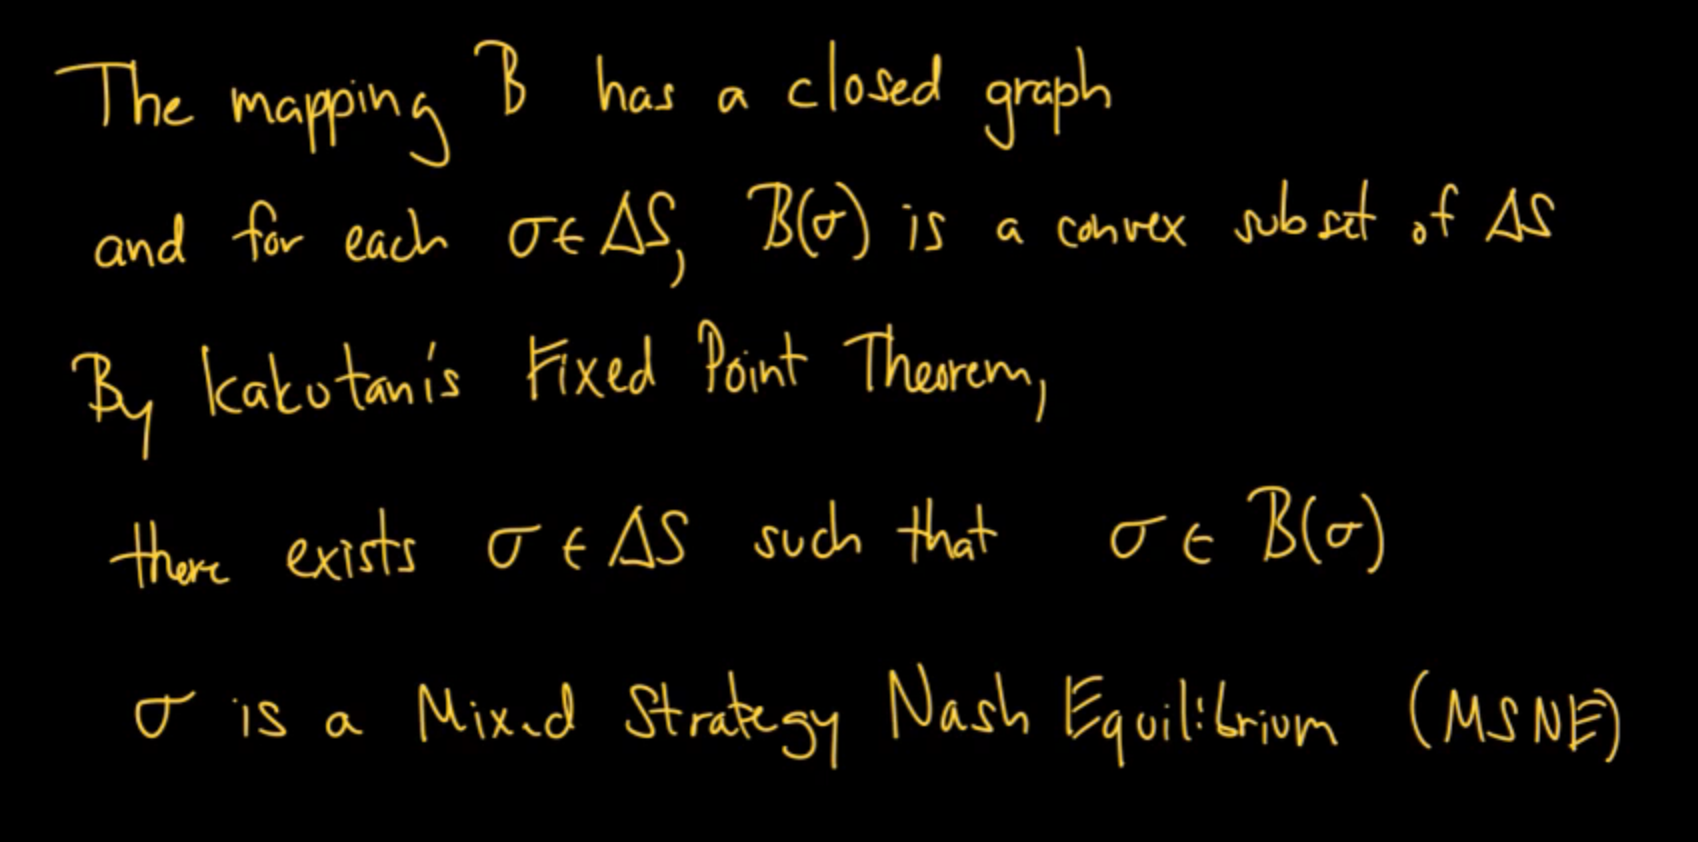 The mapping B has a closed graph
and for each σ ∈ ΔS, B(σ) is a convex subset of ΔS
By Kakutani's Fixed Point Theorem,
there exists σ ∈ ΔS such that σ ∈ B(σ)
σ is a Mixed Strategy Nash Equilibrium (MSNE)